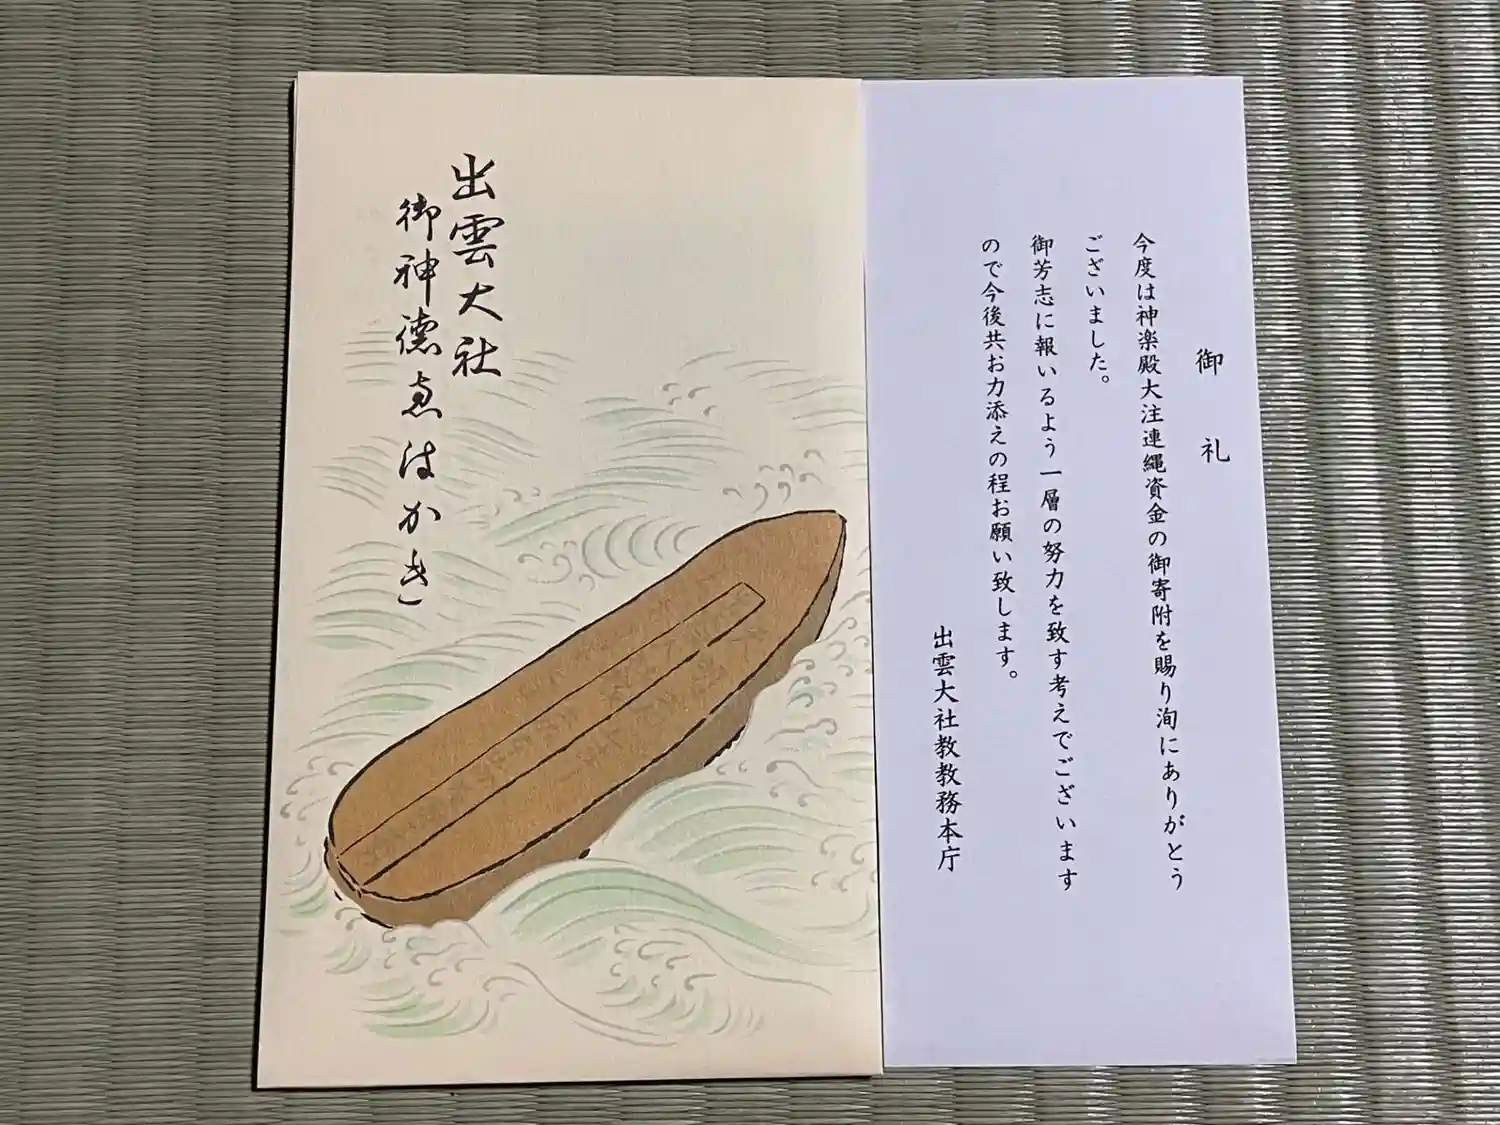 出雲大社
御神徳ゑはがき
御礼
今度は神楽殿大注連縄資金の御寄附を賜り洵にありがとう
ございました。
御芳志に報いるよう一層の努力を致す考えでございます
ので今後共お力添えの程お願い致します。
出雲大社教教務本庁